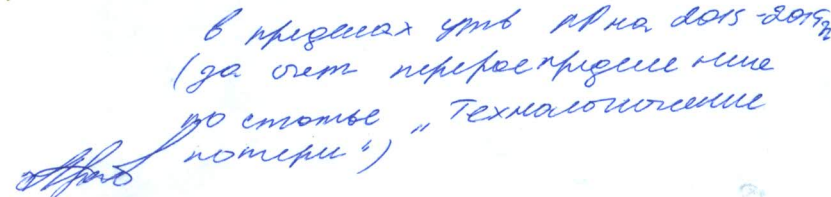 в пределах утв ПР на 2015-2019гг
(за счет перераспределение
по статье „Технологические
потери“)